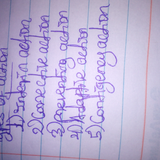 Types of action
1) Interim action
2) Corrective action
3) Preventing action
4) Adaptive action
5) Contigency action